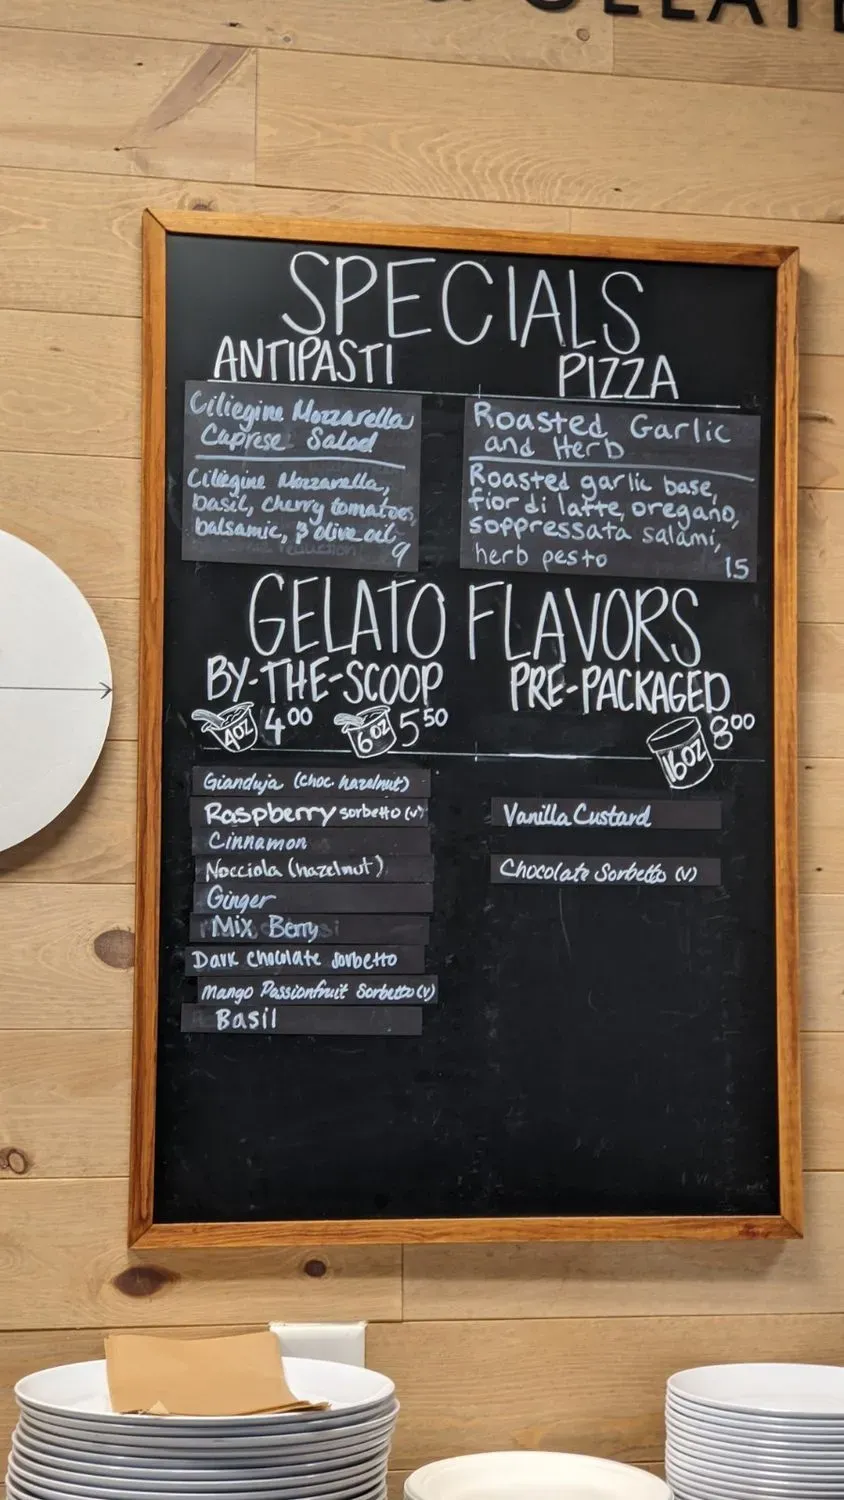 SPECIALS
ANTIPASTI
Ciliegine Mozzarella
Caprese Salad
Ciliegine Mozzarella,
basil, cherry tomatoes,
balsamic, & olive oil
9
PIZZA
Roasted Garlic
and Herb
Roasted garlic base,
fior di latte, oregano,
soppressata salami,
herb pesto 15
GELATO FLAVORS
BY-THE-SCOOP
4oz 4.00 6oz 5.50
Gianduja (choc. hazelnut)
Raspberry sorbetto (v)
Cinnamon
Nocciola (hazelnut)
Ginger
Mix Berry
Dark Chocolate sorbetto
Mango Passionfruit Sorbetto (v)
Basil
PRE-PACKAGED
16oz 8.00
Vanilla Custard
Chocolate Sorbetto (v)